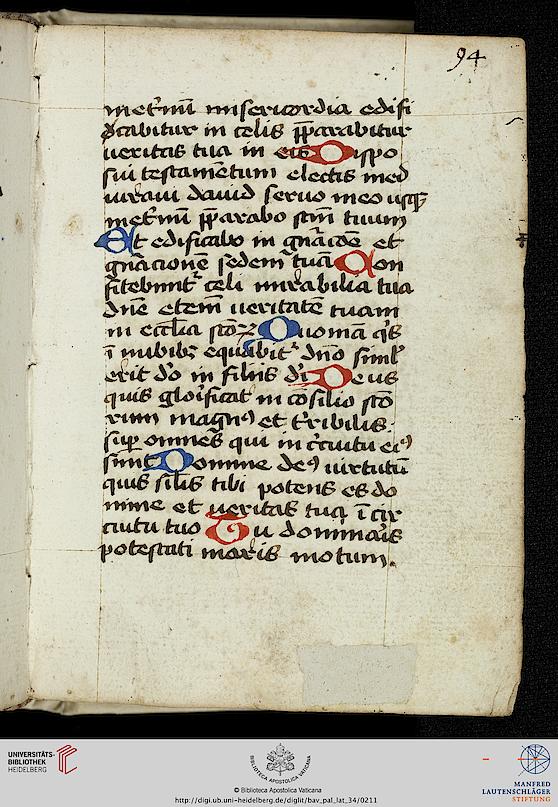 94
met̄nū misericordia edifi
cabitur in celis p̄parabitur
ueritas tua in eis Dispo
sui testamentum electis meis
iuraui dauid seruo meo usq̢
inet̄nū p̄parabo semē tuum
Et edificabo in gn̄acōe et
gn̄acionē sedem tuā Con
fitebunt᷑ celi mirabilia tua
dn̄e etem̄ ueritatē tuam
in ecc̄lia sc̄oꝝ Quomā q̇s
ī nubibꝫ equabit᷑ dn̄o simł
erit d̄o in filiis dī Deus
quis glorificat᷑ in cōsilio sc̄o
rum magnꝰ et t̄ribilis
suꝑ omnes qui in c̄cuitu eiꝰ
sunt Domine deꝰ uirtutū
quis siłis tibi potens es do
mine et ueritas tua ī cir
cuitu tuo Tu dominaīs
potestati maris motum.
UNIVERSITÄTS-
BIBLIOTHEK
HEIDELBERG
BIBLIOTHECA APOSTOLICA VATICANA
© Biblioteca Apostolica Vaticana
http://digi.ub.uni-heidelberg.de/diglit/bav_pal_lat_34/0211
MANFRED
LAUTENSCHLÄGER
STIFTUNG